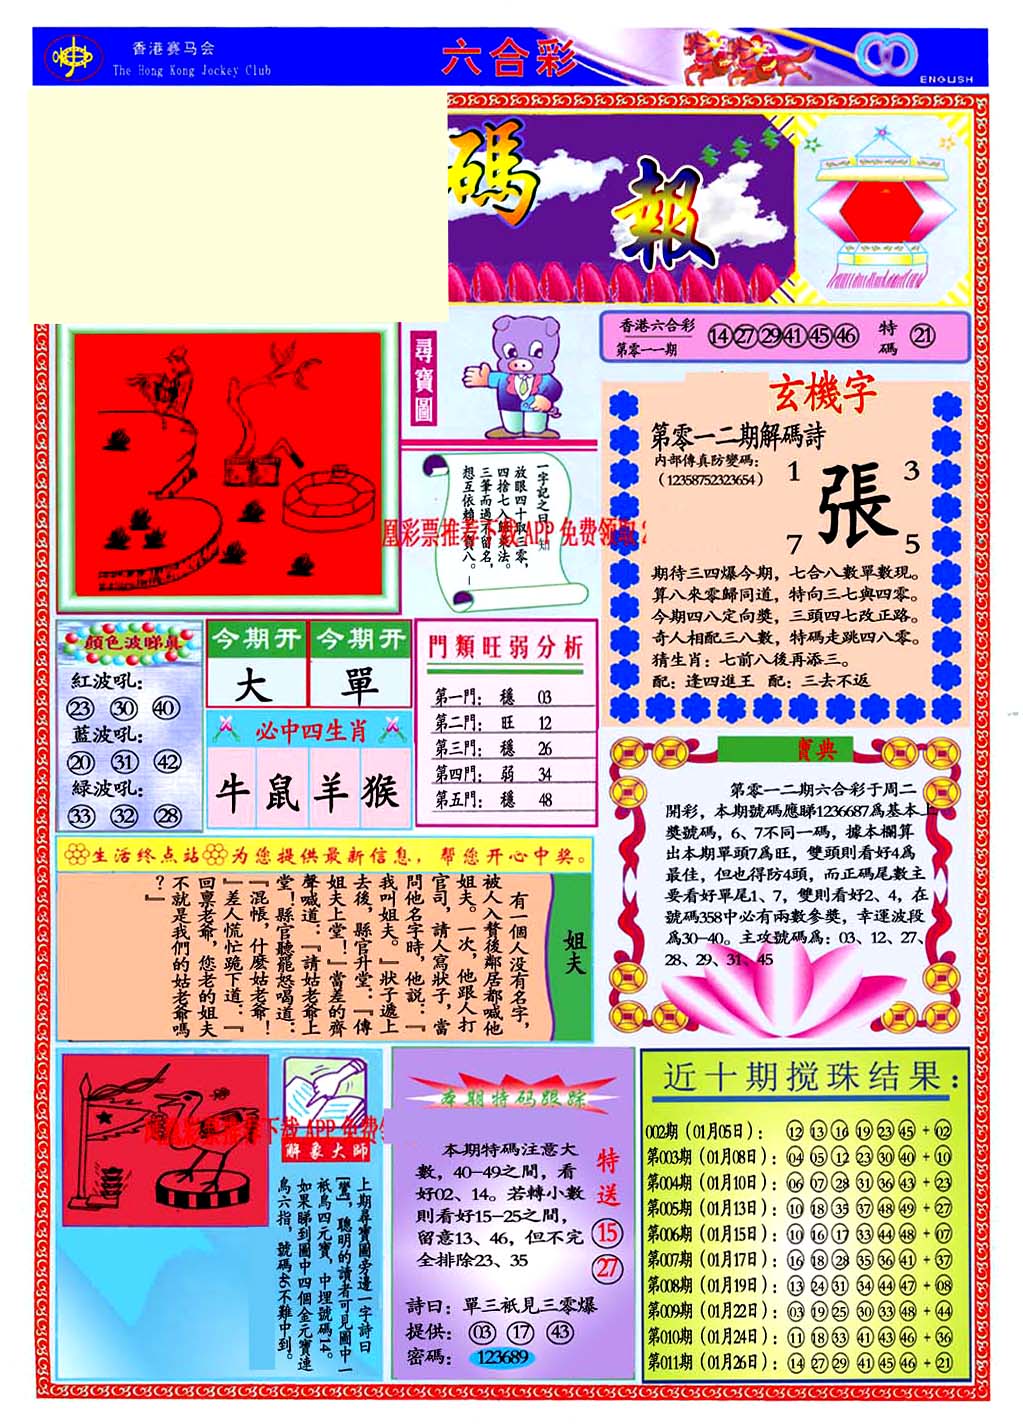 香港赛马会
The Hong Kong Jockey Club
六合彩
ENGLISH
碼報
尋寶圖
香港六合彩
第零一一期
14 27 29 41 45 46
特碼
21
玄機字
第零一二期解碼詩
内部傳真防變碼:
(12358752323654)
1 3
張
7 5
期待三四爆今期，七合八數單數現。
算八來零歸同道，特向三七與四零。
今期四八定向獎，三頭四七改正路。
奇人相配三八數，特碼走跳四八零。
猜生肖：七前八後再添三。
配：逢四進王 配：三去不返
一字記之曰：知
放眼四十取三零，
四捨七入歸真法。
三筆而過不留名，
想互依賴
凰彩票推荐下载 APP 免费领取
顔色波睇真
紅波吼:
23 30 40
藍波吼:
20 31 42
綠波吼:
33 32 28
今期开 今期开
大 單
必中四生肖
牛 鼠 羊 猴
門類旺弱分析
第一門: 穩 03
第二門: 旺 12
第三門: 穩 26
第四門: 弱 34
第五門: 穩 48
寶典
第零一二期六合彩于周二
開彩，本期號碼應睇1236687爲基本上
獎號碼，6、7不同一碼，據本欄算
出本期單頭7爲旺，雙頭則看好4爲
最佳，但也得防4頭，而正碼尾數主
要看好單尾1、7，雙則看好2、4，在
號碼358中必有兩數參獎，幸運波段
爲30-40。主攻號碼爲：03、12、27、
28、29、31、45
生活终点站 为您提供最新信息，帮您开心中奖。
姐夫
有一個人没有名字，
被人入贅後鄰居都喊他
姐夫。一次，他跟人打
官司，請人寫狀子，當
問他名字時，他説：『
我叫姐夫。』狀子遞上
去後，縣官升堂：『傳
姐夫上堂！』當差的齊
聲喊道：『請姑老爺上
堂！縣官聽罷怒喝道：
『混帳，什麽姑老爺！
』差人慌忙跪下道：『
回禀老爺，您老的姐夫
不就是我們的姑老爺嗎
？』
下载 APP 免费
解象大師
上期尋寶圖旁邊一字詩曰
，聰明的讀者可見圖中一
祇鳥四元寶，中埋號碼14。
如果睇到圖中四個金元寶連
鳥六指，號碼46不難中到。
本期特码跟踪
本期特碼注意大
數，40-49之間，看
好02、14。若轉小數
則看好15-25之間，
留意13、46，但不完
全排除23、35
特送
15
27
詩曰：單三祇見三零爆
提供: 03 17 43
密碼: 123689
近十期搅珠结果：
002期 (01月05日): 12 13 16 19 23 45 + 02
第003期 (01月08日): 04 05 12 23 30 40 + 10
第004期 (01月10日): 06 07 28 31 36 43 + 23
第005期 (01月13日): 10 18 35 37 48 49 + 27
第006期 (01月15日): 10 16 17 33 44 48 + 07
第007期 (01月17日): 16 18 28 35 36 41 + 37
第008期 (01月19日): 13 24 31 34 44 47 + 08
第009期 (01月22日): 03 19 25 30 33 48 + 44
第010期 (01月24日): 11 18 33 41 43 46 + 36
第011期 (01月26日): 14 27 29 41 45 46 + 21